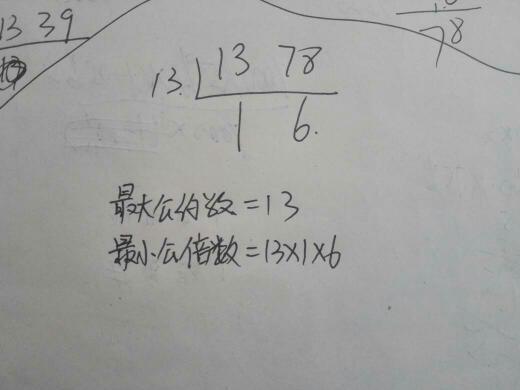 13 39
78
13 13 78
1 6
最大公约数=13
最小公倍数=13×1×6